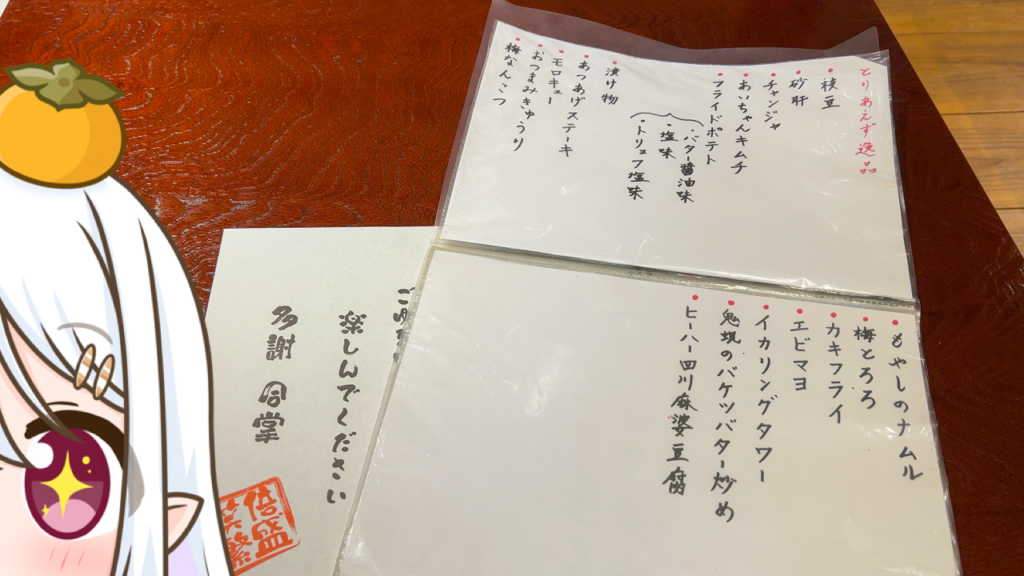 とりあえず逸品
枝豆
砂肝
チャンジャ
あっちゃんキムチ
フライドポテト
・バター醤油味
・塩味
・トリュフ塩味
漬け物
あつあげステーキ
モロキュー
おつまみきゅうり
梅なんこつ
もやしのナムル
梅とろろ
カキフライ
エビマヨ
イカリングタワー
のバケツバター炒め
ヒーハー四川麻婆豆腐
楽しんでください
多謝
倍盛